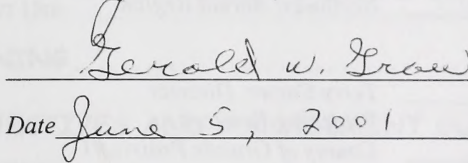 Gerold W. Grow
Date June 5, 2001